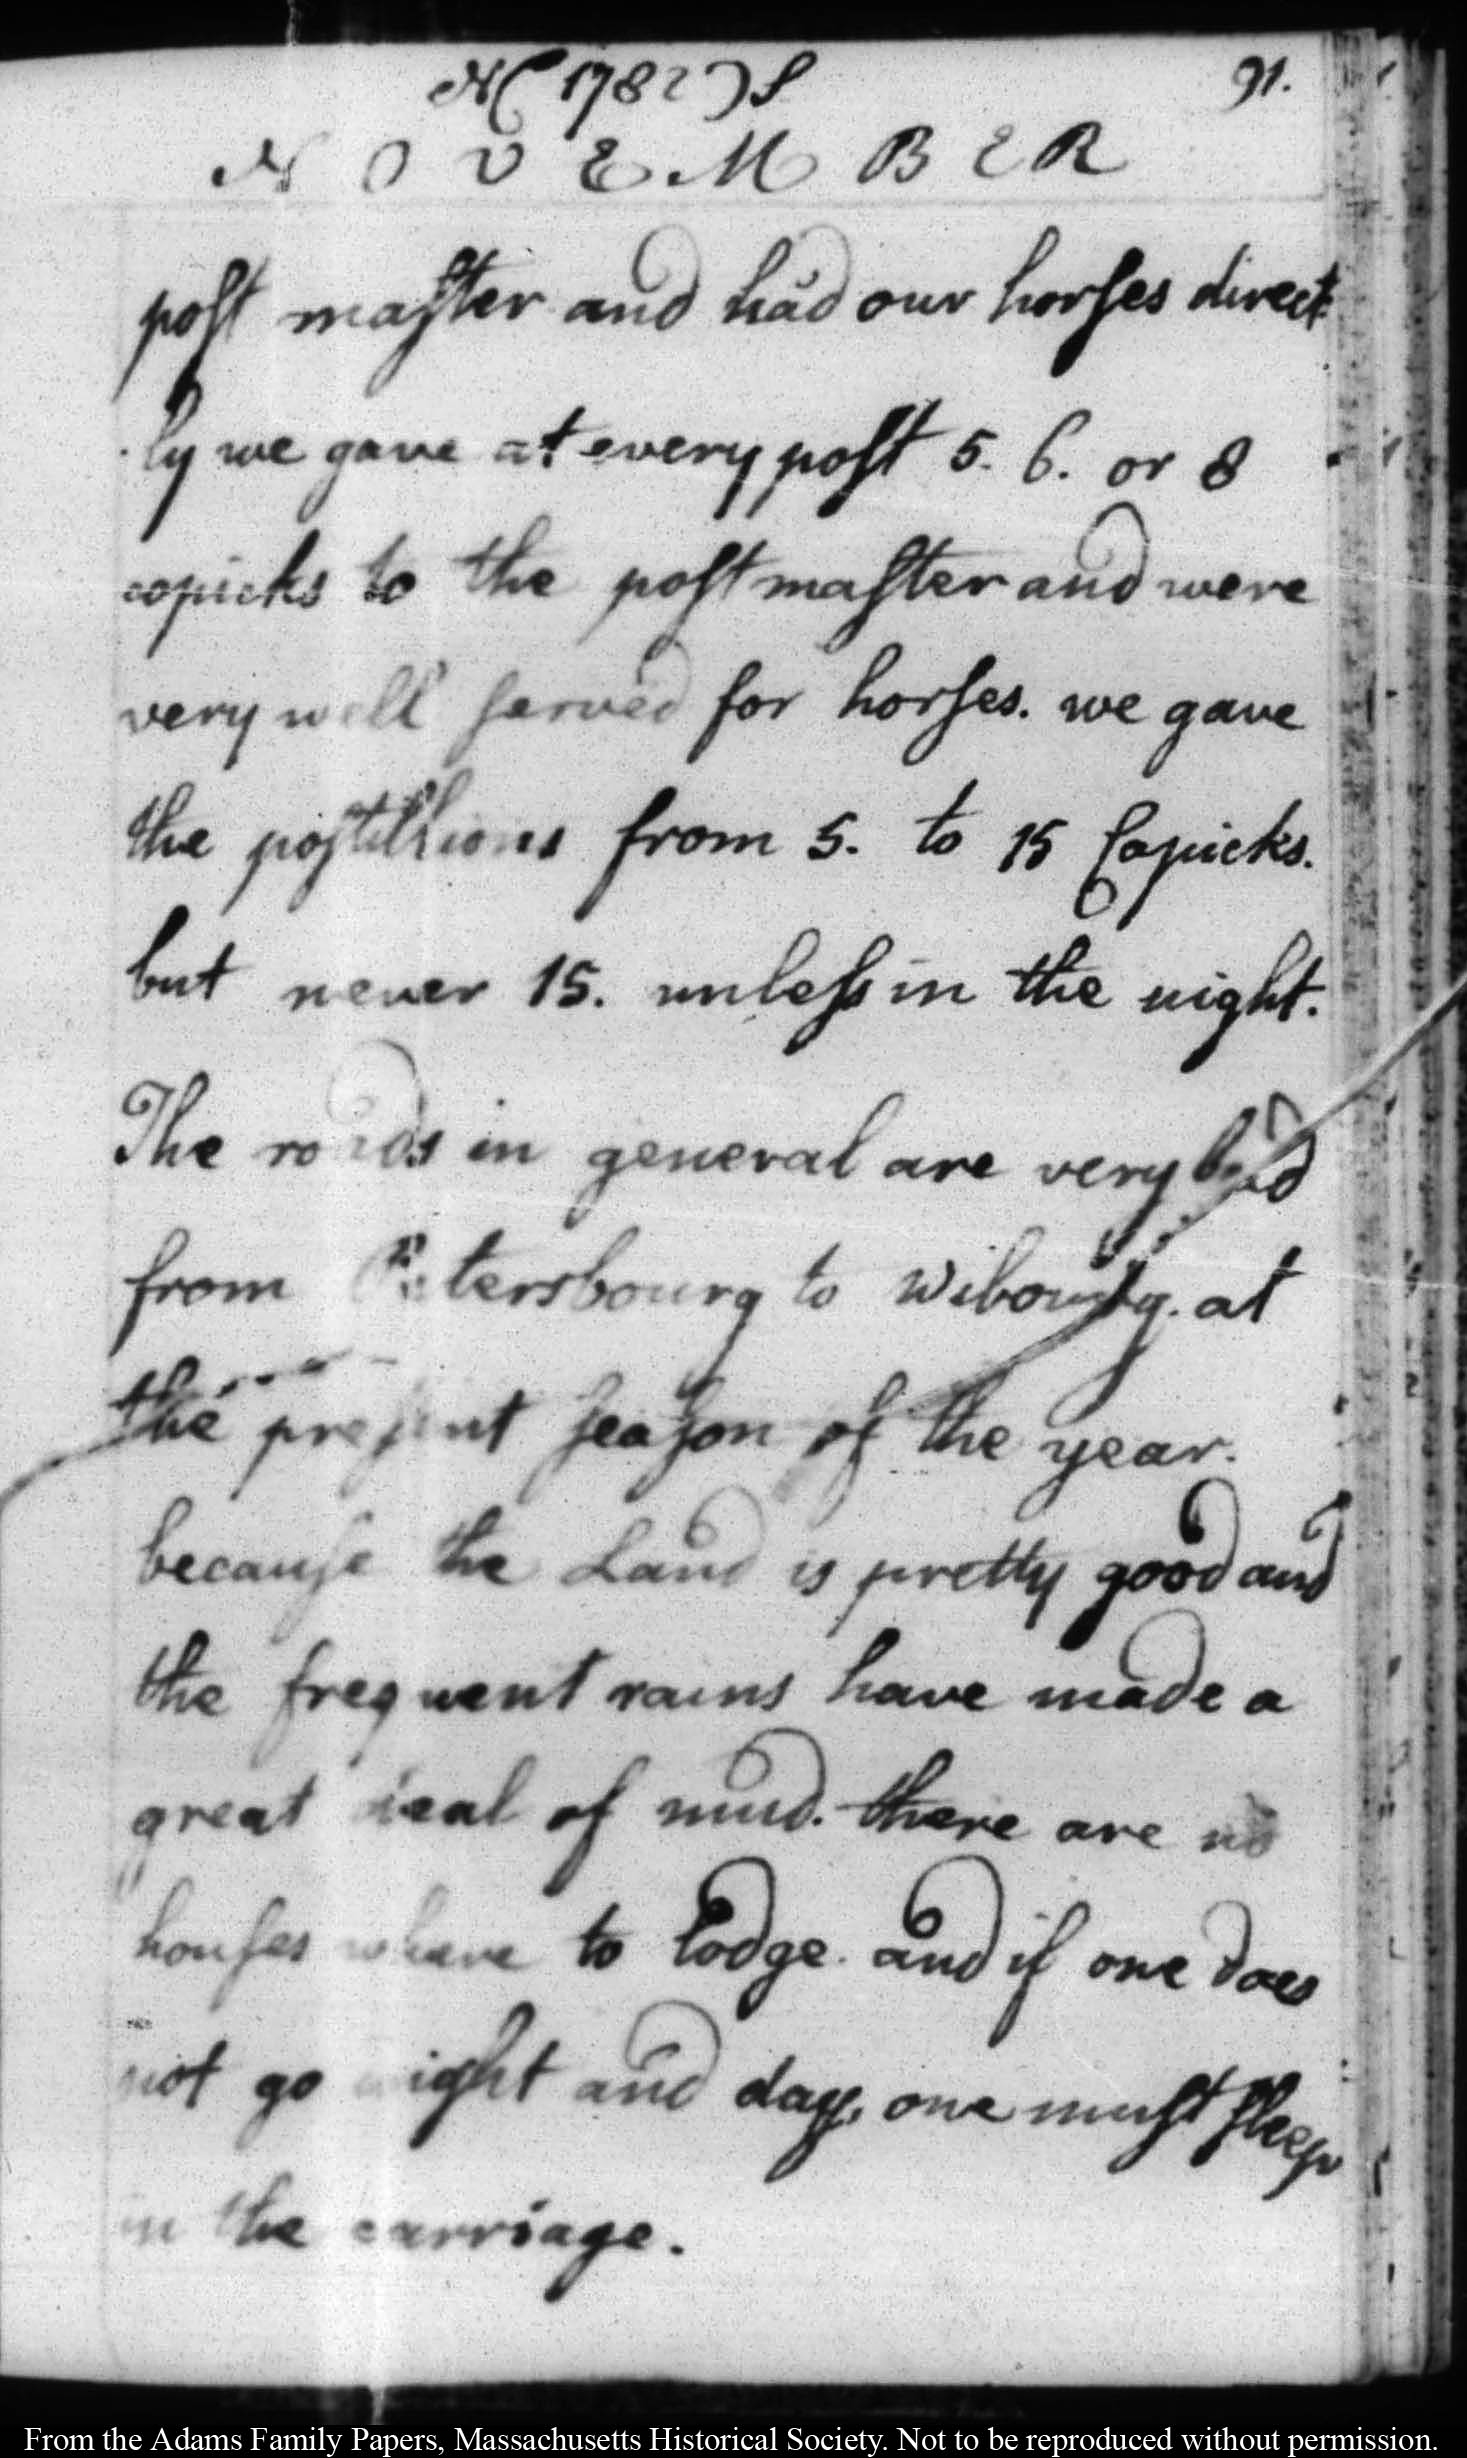 N(1782)S 91.
NOVEMBER
post master and had our horses direct
ly we gave at every post 5. 6. or 8
copicks to the post master and were
very well served for horses. we gave
the postillions from 5. to 15 Copicks.
but never 15. unless in the night.
The roads in general are very bad
from Petersbourg to Wibourg. at
the present season of the year.
because the Land is pretty good and
the frequent rains have made a
great deal of mud. there are no
houses where to lodge. and if one does
not go night and day, one must sleep
in the carriage.
From the Adams Family Papers, Massachusetts Historical Society. Not to be reproduced without permission.